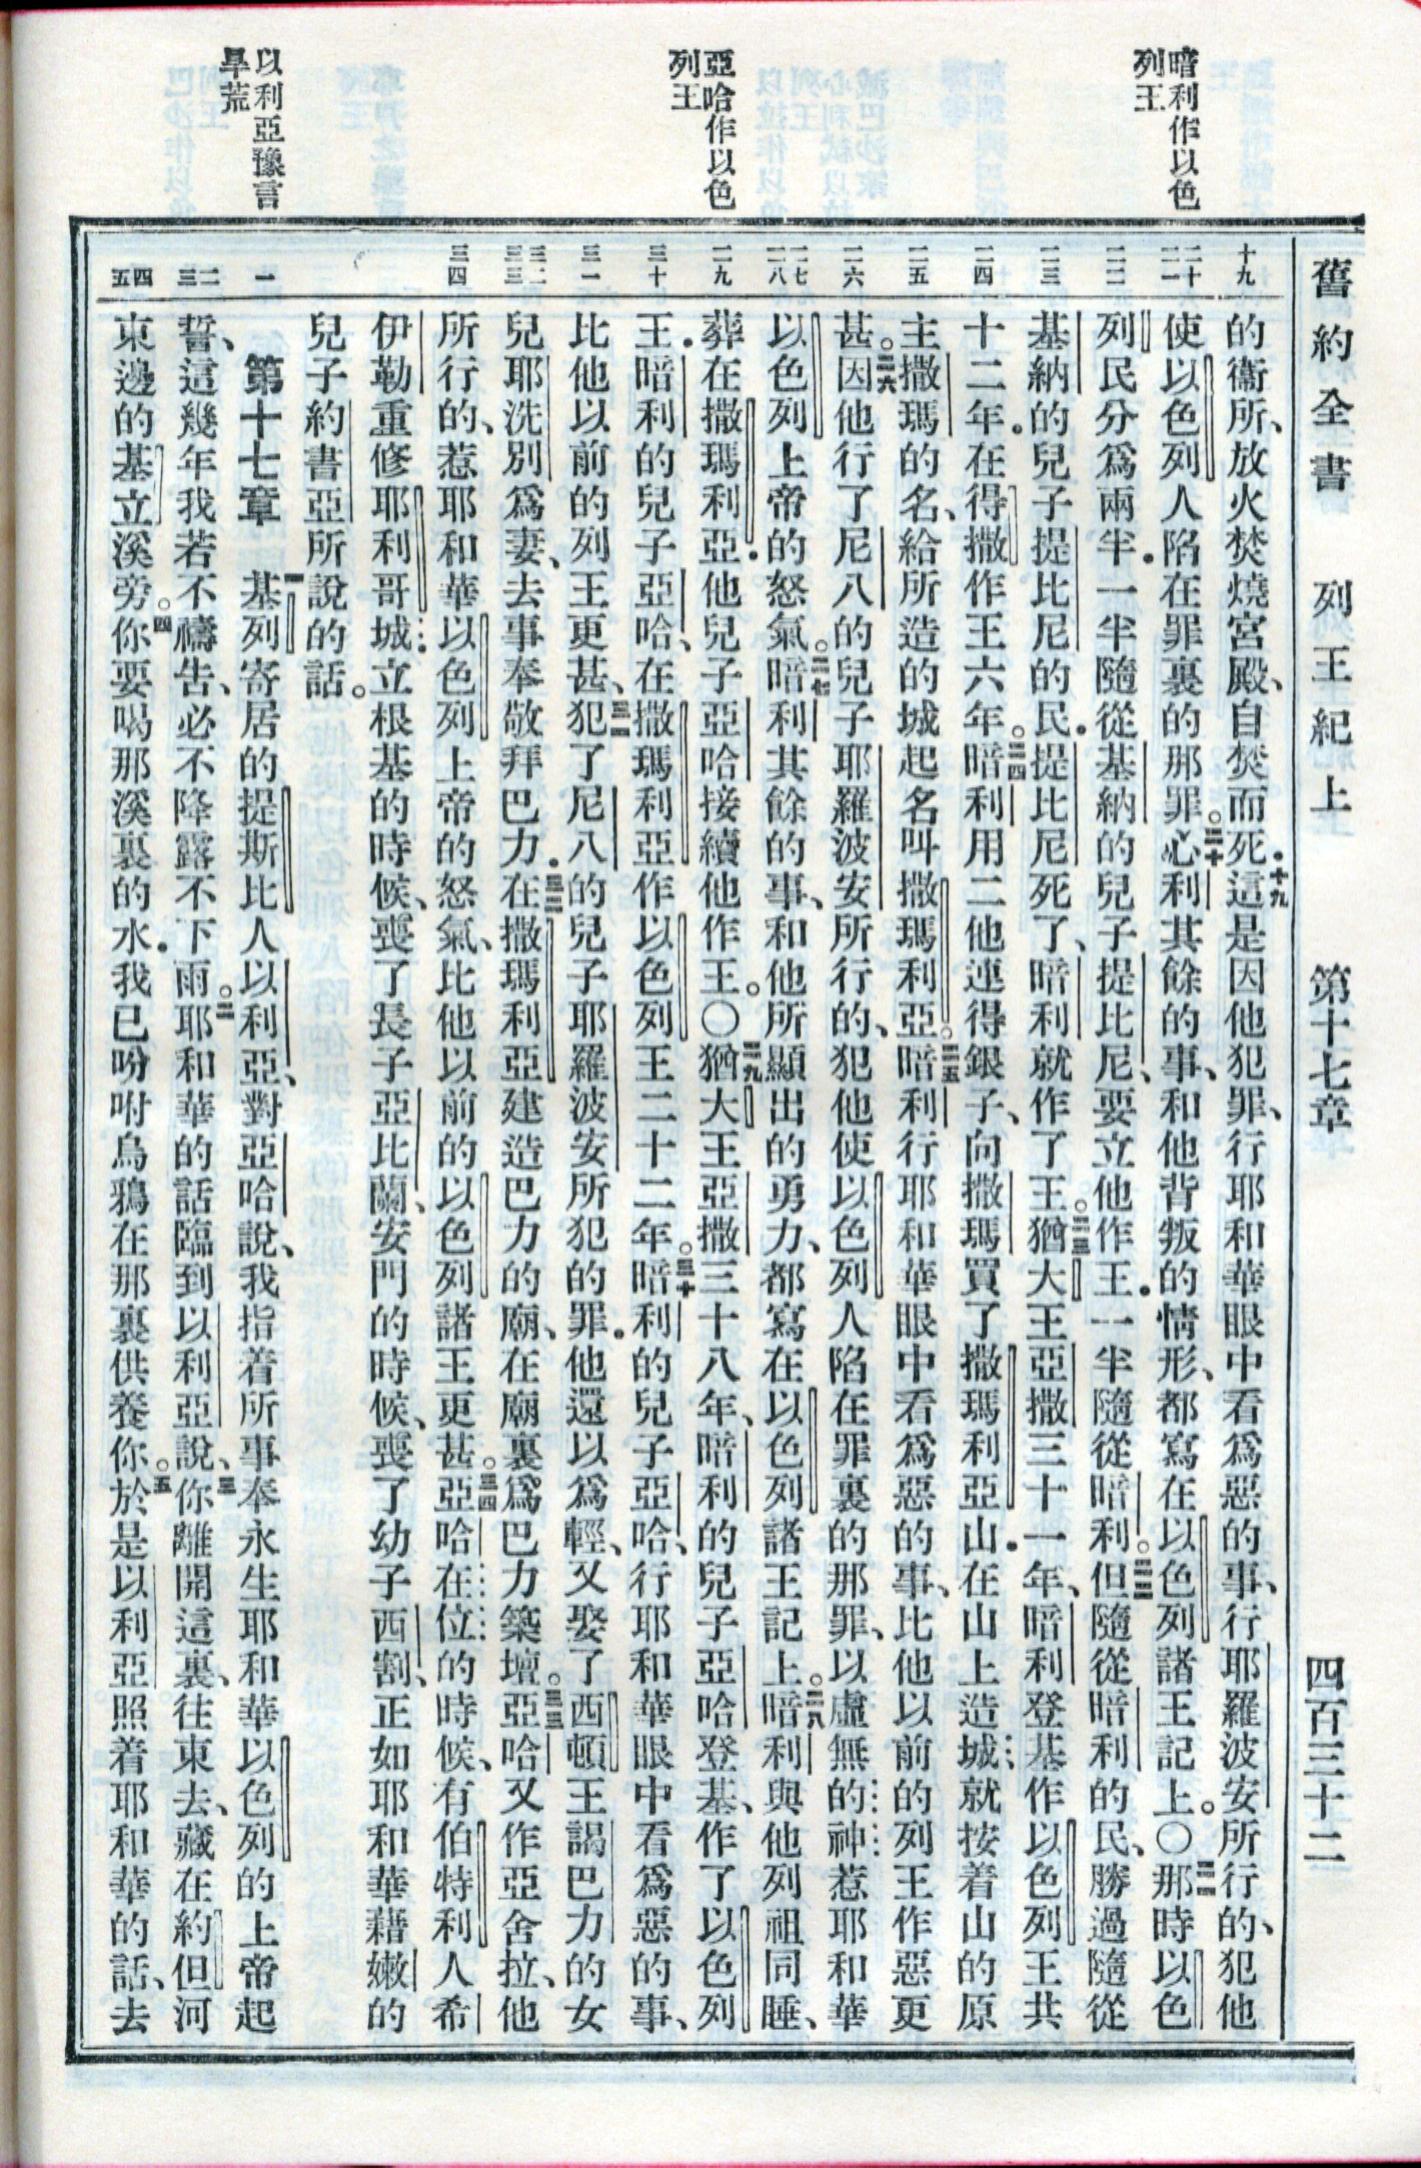 舊約全書 列王紀上 第十七章 四百三十二
暗利作以色
列王
亞哈作以色
列王
以利亞豫言
旱荒
十九
二十
二一
二二
二三
二四
二五
二六
二七
二八
二九
三十
三一
三二
三三
三四
一
二
三
四
五
的衞所、放火焚燒宮殿、自焚而死.十九這是因他犯罪、行耶和華眼中看爲惡的事、行耶羅波安所行的、犯他
使以色列人陷在罪裏的那罪。二十心利其餘的事、和他背叛的情形、都寫在以色列諸王記上。〇二一那時以色
列民分爲兩半.一半隨從基納的兒子提比尼、要立他作王.一半隨從暗利。二二但隨從暗利的民、勝過隨從
基納的兒子提比尼的民.提比尼死了、暗利就作了王。二三猶大王亞撒三十一年、暗利登基作以色列王共
十二年.在得撒作王六年。二四暗利用二他連得銀子、向撒瑪買了撒瑪利亞山.在山上造城、就按着山的原
主撒瑪的名、給所造的城起名叫撒瑪利亞。二五暗利行耶和華眼中看爲惡的事、比他以前的列王作惡更
甚。二六因他行了尼八的兒子耶羅波安所行的、犯他使以色列人陷在罪裏的那罪、以虛無的神惹耶和華
以色列上帝的怒氣。二七暗利其餘的事、和他所顯出的勇力、都寫在以色列諸王記上。二八暗利與他列祖同睡、
葬在撒瑪利亞.他兒子亞哈接續他作王。〇二九猶大王亞撒三十八年、暗利的兒子亞哈登基、作了以色列
王.暗利的兒子亞哈、在撒瑪利亞作以色列王二十二年。三十暗利的兒子亞哈、行耶和華眼中看爲惡的事、
比他以前的列王更甚、三一犯了尼八的兒子耶羅波安所犯的罪.他還以爲輕、又娶了西頓王謁巴力的女
兒耶洗別爲妻、去事奉敬拜巴力.三二在撒瑪利亞建造巴力的廟、在廟裏爲巴力築壇。三三亞哈又作亞舍拉、他
所行的、惹耶和華以色列上帝的怒氣、比他以前的以色列諸王更甚。三四亞哈在位的時候、有伯特利人希
伊勒重修耶利哥城立根基的時候、喪了長子亞比蘭、安門的時候、喪了幼子西割、正如耶和華藉嫩的
兒子約書亞所說的話。
第十七章 一基列寄居的提斯比人以利亞、對亞哈說、我指着所事奉永生耶和華以色列的上帝起
誓、這幾年我若不禱告、必不降露不下雨。二耶和華的話臨到以利亞說、三你離開這裏、往東去、藏在約但河
東邊的基立溪旁。四你要喝那溪裏的水.我已吩咐烏鴉在那裏供養你。五於是以利亞照着耶和華的話、去